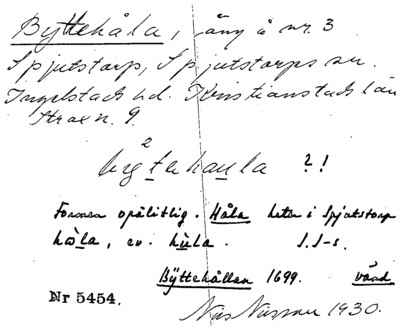 Byttehåla, äng å nr. 3
Spjutstorp, Spjutstorps sn.
Ingelstads hd. Kristianstads län
Strax n. 9.
2
bytehaula ?!
Formen opålitlig. Håla heter i Spjutstorp
hòla, ev. hùla. I.I-s.
Byttehållan 1699. vård
Nr 5454.
Nils Nilsson 1930.